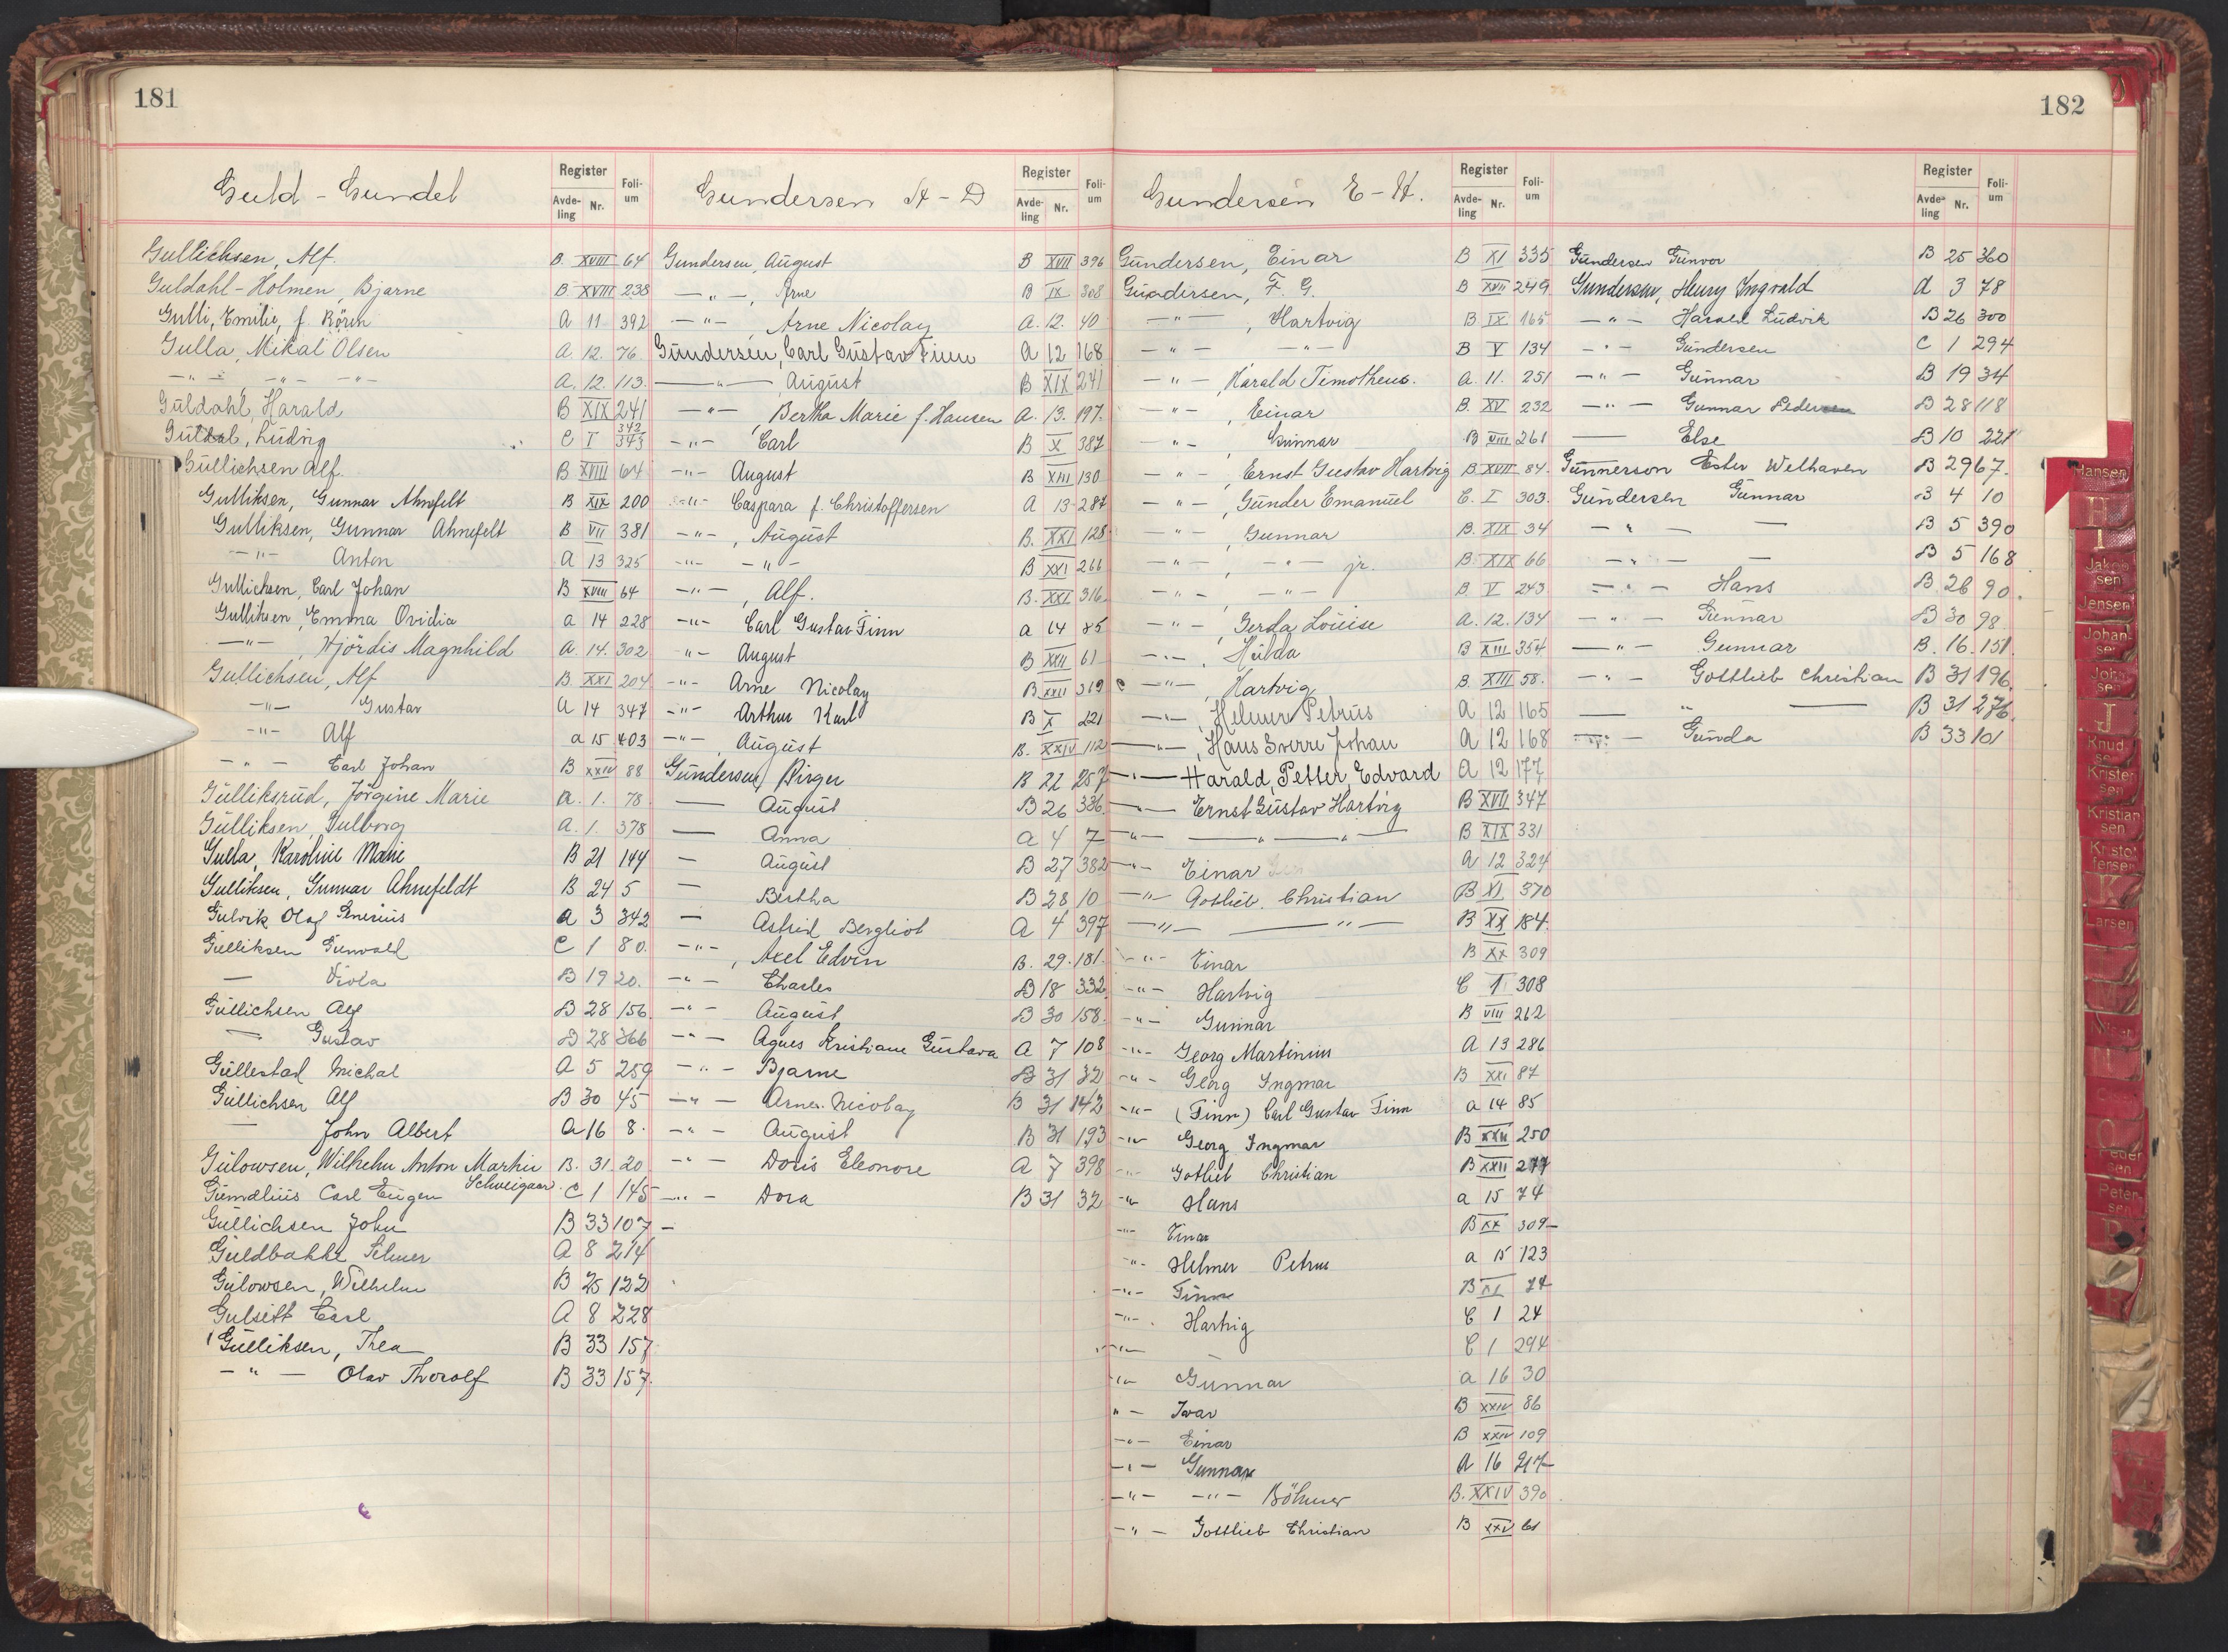 181
Guld - Gundel
Register
Avde-ling Nr. Foli-um
Gullichsen, Alf. B. XVIII 64
Guldahl-Holmen, Bjarne B XVIII 238
Gulli, Emilie, f. Rören A 11 392
Gulla, Mikal Olsen A. 12. 76
-"- -"- -"- A. 12. 113.
Guldahl, Harald B XIX 241
Guldal, Ludvig C I 342 343
Gullichsen Alf. B XVIII 64
Gulliksen, Gunnar Ahnefelt B XIX 200
Gulliksen, Gunnar Ahnefelt B VII 381
-"- Anton A 13 325
Gullichsen, Carl Johan B XVIII 64
Gulliksen, Emma Ovidia a 14 228
-"-, Hjördis Magnhild A. 14. 302
Gullichsen, Alf B. XXI 204
-"- Gustav A 14 347
-"- Alf a 15 403
-"- Carl Johan B XXIV 88
Gulliksrud, Jörgine Marie A. 1. 78
Gulliksen, Gulborg A. 1. 378
Gulla, Karoline Marie B 21 144
Gulliksen, Gunnar Ahnefeldt B 24 5
Gulvik Olaf Severius A 3 342
Gulliksen Gunvald C 1 80.
— Viola B 19 20.
Gullichsen Alf B 28 156
— Gustav B 28 366
Gullestad Michal A 5 259
Gullichsen Alf B 30 45
— John Albert A 16 8.
Gulowsen, Wilhelm Anton Martin Schweigaard B. 31. 20
Gumdlius Carl Eugen C 1 145
Gullichsen John B 33 107
Guldbakke Selmer A 8 214
Gulowsen, Wilhelm B 25 122
Gulsett Carl A 8 228
Gulliksen, Thea B 33 157
-"- Olav Thorolf B 33 157.
Gundersen A - D
Register
Avde-ling Nr. Foli-um
Gundersen, August B XVII 396
-"-, Arne B IX 308
-"-, Arne Nicolay A. 12. 40
Gundersen, Carl Gustav Finn A 12 168
-"- August B XIX 241
-"-, Bertha Marie f. Hansen A. 13. 197.
-"- Carl B X 387
-"- August B XIII 130
-"- Caspara f. Christoffersen A 13 287
-"-, August B. XXI 128
-"- -"- B XXI 266
-"-, Alf. B. XXI 316
-"- Carl Gustav Finn a 14 85
-"- August B XXII 61
-"- Arne Nicolay B XXII 319
-"- Arthur Karl B X 221
-"- August B. XXIV 112
Gundersen, Birger B 22 257
— August B 26 336
— Anna A 4 7
— August B 27 382
— Bertha B 28 10
— Astrid Bergliot A 4 397
-"-, Axel Edvin B. 29. 181.
-"- Charles B 18 332
-"- August B 30 158.
-"- Agnes Kristiane Gustava A 7 108
-"- Bjarne B 31 32
-"- Arne Nicolay B 31 142
-"- August B 31 193
-"- Doris Eleonore A 7 398
-"- Dora B 31 32
182
Gundersen E - H.
Register
Avde-ling Nr. Foli-um
Gundersen, Einar B XI 335
Gundersen, F. G. B XVII 249
-"-, Hartvig B IX 165
-"- -"- B V 134
-"-, Harald Timotheus. A. 11. 251
-"-, Einar B. XV 232
-"- Gunnar B VIII 261
-"-, Ernst Gustav Hartvig B. XVII 84.
-"-, Gunder Emanuel C. I 303.
-"-, Gunnar B. XIX 34
-"-, -"- jr. B. XIX 66
-"-, -"- B V 243
-"-, Gerda Louise A. 12. 134
-"-, Hulda B XIII 354
-"-, Hartvig B. XIII 58.
-"-, Helmer Petrus A 12 165
-"-, Hans Sverre Johan A 12 168
-"- Harald, Petter, Edvard A 12 177
-"- Ernst Gustav Hartvig B XVII 347
-"- -"- -"- B XIX 331
-"- Einar A 12 324
-"- Gotlieb. Christian B XI 370
-"- -"- B XX 184.
-"- Einar B XX 309
-"- Hartvig C 1 308
-"- Gunnar B VIII 262
-"- Georg Martinius A 13 286
-"- Georg Ingmar B XXI 87
-"- (Finn) Carl Gustav Finn a 14 85
-"- Georg Ingmar B XXII 250
-"- Gotlieb Christian B XXII 277
-"- Hans a 15 74
-"- Einar B XX 309
-"- Helmer Petrus a 15 123
-"- Finn B XI 74
-"- Hartvig C 1 24
-"- C 1 294
-"- Gunnar a 16 30
"- Ivar B XXIV 86
-"- Einar B XXIV 109
-"- Gunnar A 16 217
-"- -"- Böhmer B. XXIV 390
-"- Gottlieb Christian B XXV 61
Register
Avde-ling Nr. Foli-um
Gundersen Gunvor B 25 360
Gundersen, Henry Ingvald A 3 78
-"- Harald Ludvik B 26 300
-"- Gundersen C 1 294
-"- Gunnar B 19 34
-"- Gunnar Pedersen B 28 118
— Else B 10 221
Gunnerson Ester Welhaven B 29 67.
Gundersen Gunnar B 4 10
-"- — B 5 390
-"- — B 5 168
-"- Hans B. 26 90.
-"- Gunnar B 30 98.
-"- Gunnar B. 16. 151.
-"- Gottlieb Christian B 31 196.
— " — B 31 276.
-"- Gunda B 33 101
Hansen
H
I
Jakobsen
Jensen
Johansen
Johnsen
J
Knudsen
Kristensen
Kristiansen
Kristoffersen
K
Larsen
Pedersen
Petersen
P